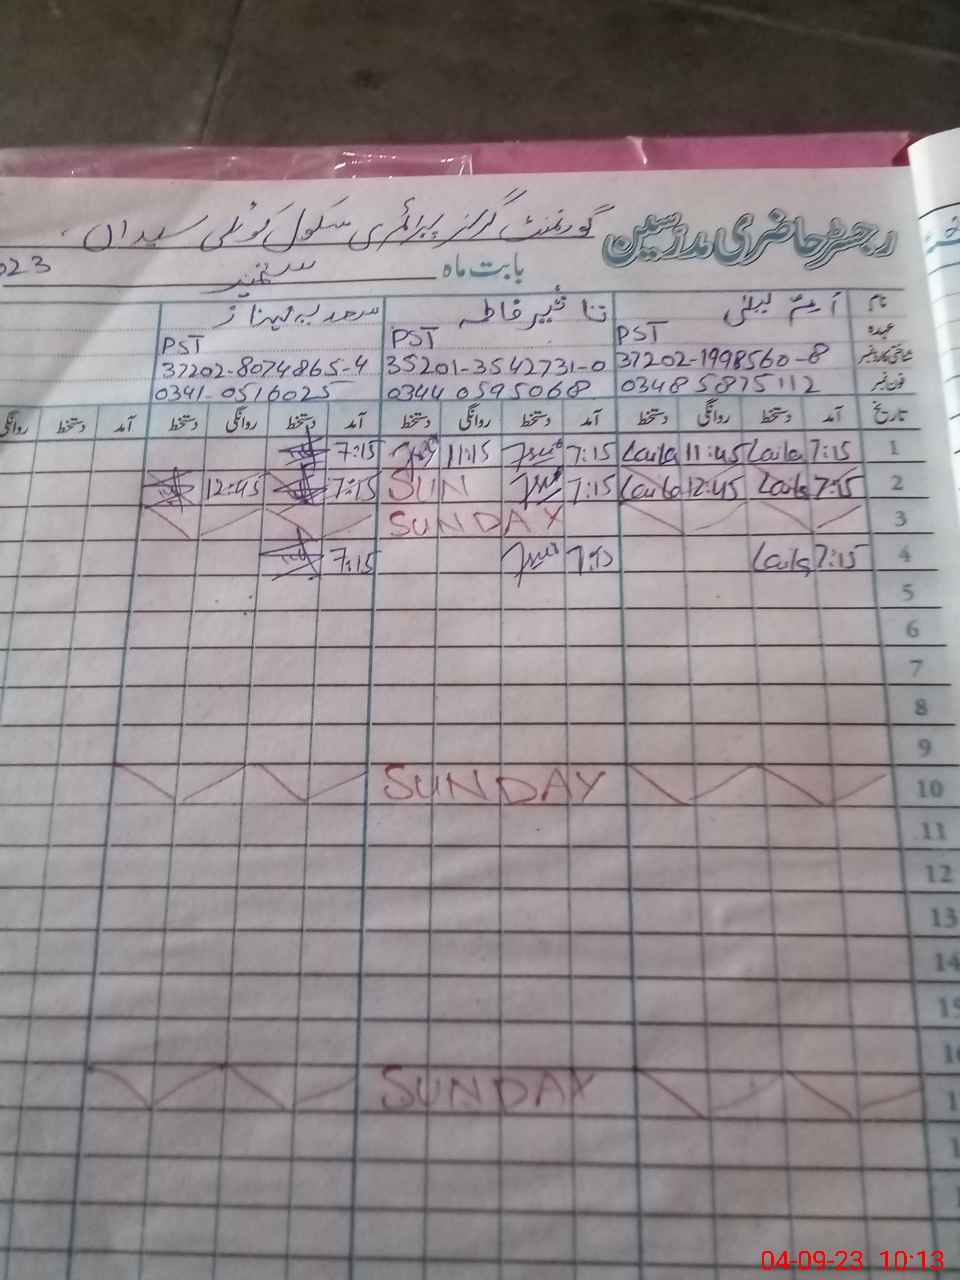 رجسٹر حاضری مدرسین گورنمنٹ گرلز پرائمری سکول کوٹلی سیداں
بابت ماہ ستمبر 023
نام
عہدہ PST PST PST
37202-1998560-8 35201-3542731-0 37202-8074865-4
فون نمبر 03485875112 03440595068 0341-0516025
تاریخ آمد دستخط روانگی دستخط آمد دستخط روانگی دستخط آمد دستخط روانگی دستخط آمد دستخط روانگی
1 7:15 Laila 11:45 Laila 7:15 11:15 7:15
2 7:15 Laila 12:45 Laila 7:15 SUN 7:15 12:45
3 SUNDAY
4 7:15 Laila 7:15 7:15
5
6
7
8
9
10 SUNDAY
11
12
13
14
15
SUNDAY
04-09-23 10:13